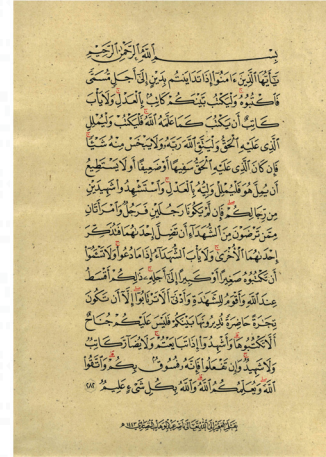 بِسْمِ اللَّهِ الرَّحْمَٰنِ الرَّحِيمِ
يَٰٓأَيُّهَا الَّذِينَ ءَامَنُوٓا إِذَا تَدَايَنتُم بِدَيْنٍ إِلَىٰٓ أَجَلٍ مُّسَمًّى
فَاكْتُبُوهُ وَلْيَكْتُب بَّيْنَكُمْ كَاتِبٌۢ بِالْعَدْلِ وَلَا يَأْبَ
كَاتِبٌ أَن يَكْتُبَ كَمَا عَلَّمَهُ اللَّهُ فَلْيَكْتُبْ وَلْيُمْلِلِ
الَّذِى عَلَيْهِ الْحَقُّ وَلْيَتَّقِ اللَّهَ رَبَّهُ وَلَا يَبْخَسْ مِنْهُ شَيْـًٔا
فَإِن كَانَ الَّذِى عَلَيْهِ الْحَقُّ سَفِيهًا أَوْ ضَعِيفًا أَوْ لَا يَسْتَطِيعُ
أَن يُمِلَّ هُوَ فَلْيُمْلِلْ وَلِيُّهُ بِالْعَدْلِ وَاسْتَشْهِدُوا شَهِيدَيْنِ
مِن رِّجَالِكُمْ فَإِن لَّمْ يَكُونَا رَجُلَيْنِ فَرَجُلٌ وَامْرَأَتَانِ
مِمَّن تَرْضَوْنَ مِنَ الشُّهَدَآءِ أَن تَضِلَّ إِحْدَىٰهُمَا فَتُذَكِّرَ
إِحْدَىٰهُمَا الْأُخْرَىٰ وَلَا يَأْبَ الشُّهَدَآءُ إِذَا مَا دُعُوا وَلَا تَسْـَٔمُوٓا
أَن تَكْتُبُوهُ صَغِيرًا أَوْ كَبِيرًا إِلَىٰٓ أَجَلِهِ ذَٰلِكُمْ أَقْسَطُ
عِندَ اللَّهِ وَأَقْوَمُ لِلشَّهَٰدَةِ وَأَدْنَىٰٓ أَلَّا تَرْتَابُوٓا إِلَّآ أَن تَكُونَ
تِجَٰرَةً حَاضِرَةً تُدِيرُونَهَا بَيْنَكُمْ فَلَيْسَ عَلَيْكُمْ جُنَاحٌ
أَلَّا تَكْتُبُوهَا وَأَشْهِدُوٓا إِذَا تَبَايَعْتُمْ وَلَا يُضَآرَّ كَاتِبٌ
وَلَا شَهِيدٌ وَإِن تَفْعَلُوا فَإِنَّهُ فُسُوقٌۢ بِكُمْ وَاتَّقُوا
اللَّهَ وَيُعَلِّمُكُمُ اللَّهُ وَاللَّهُ بِكُلِّ شَىْءٍ عَلِيمٌ ٢٨٢